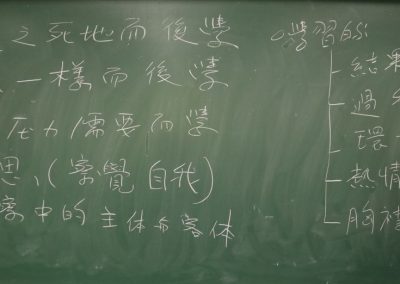 之死地而後學
一樣而後學
压力/需要而學
思(察覺自我)
察中的主体与客体
學習的:
結果
過
環
熱情
胸襟